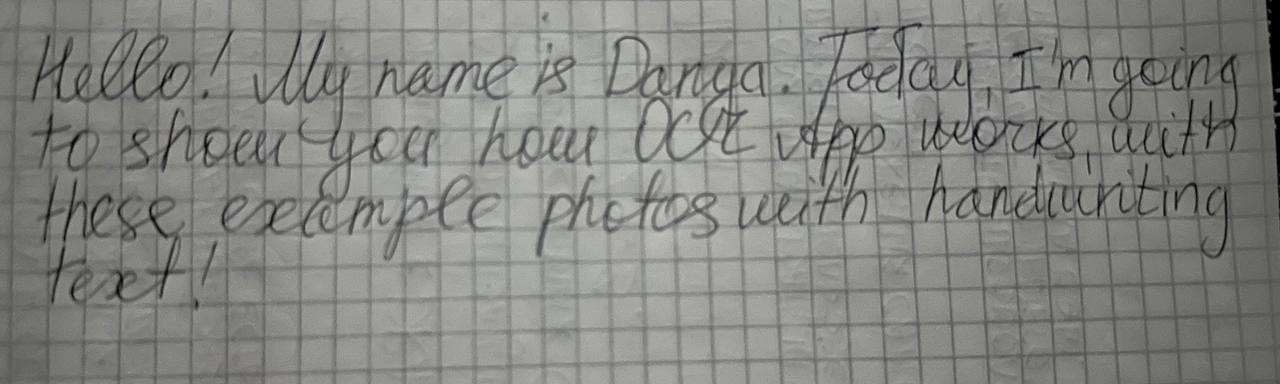 Hello! My name is Danya. Today, I'm going
to show you how OCR App works, with
these example photos with handwriting
text!